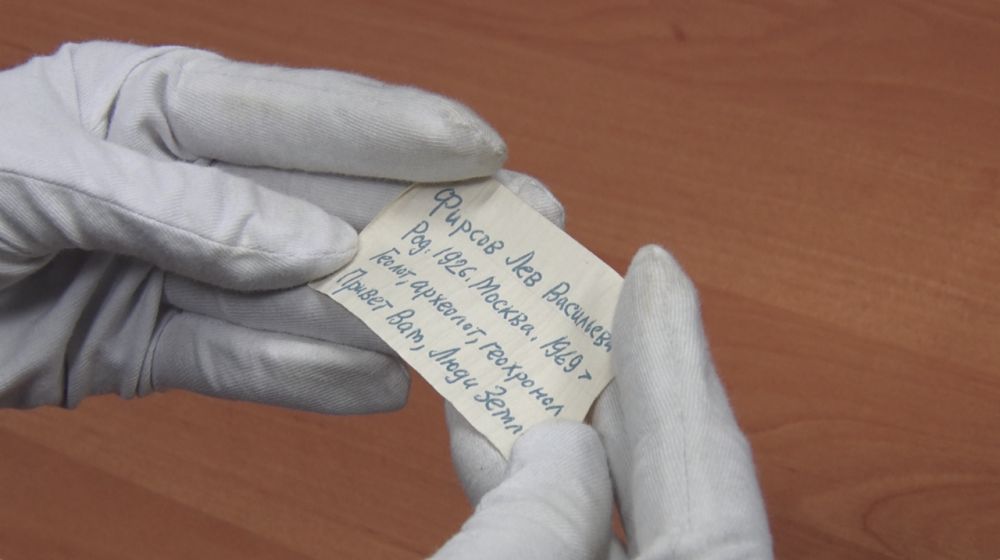 Фирсов Лев Васильеви
Род. 1926. Москва. 1969 г
Геолог, археолог, геохронол
Привет Вам, Люди Земл